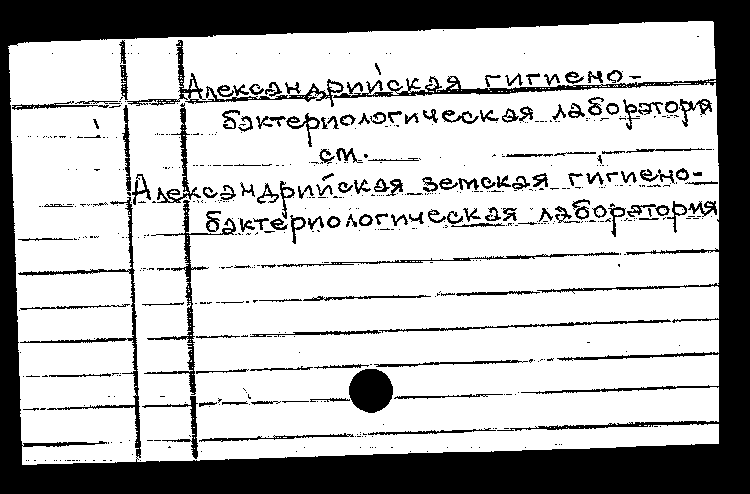 Александрийская гигиено-
бактериологическая лаборатория
см.
Александрийская земская гигиено-
бактериологическая лаборатория